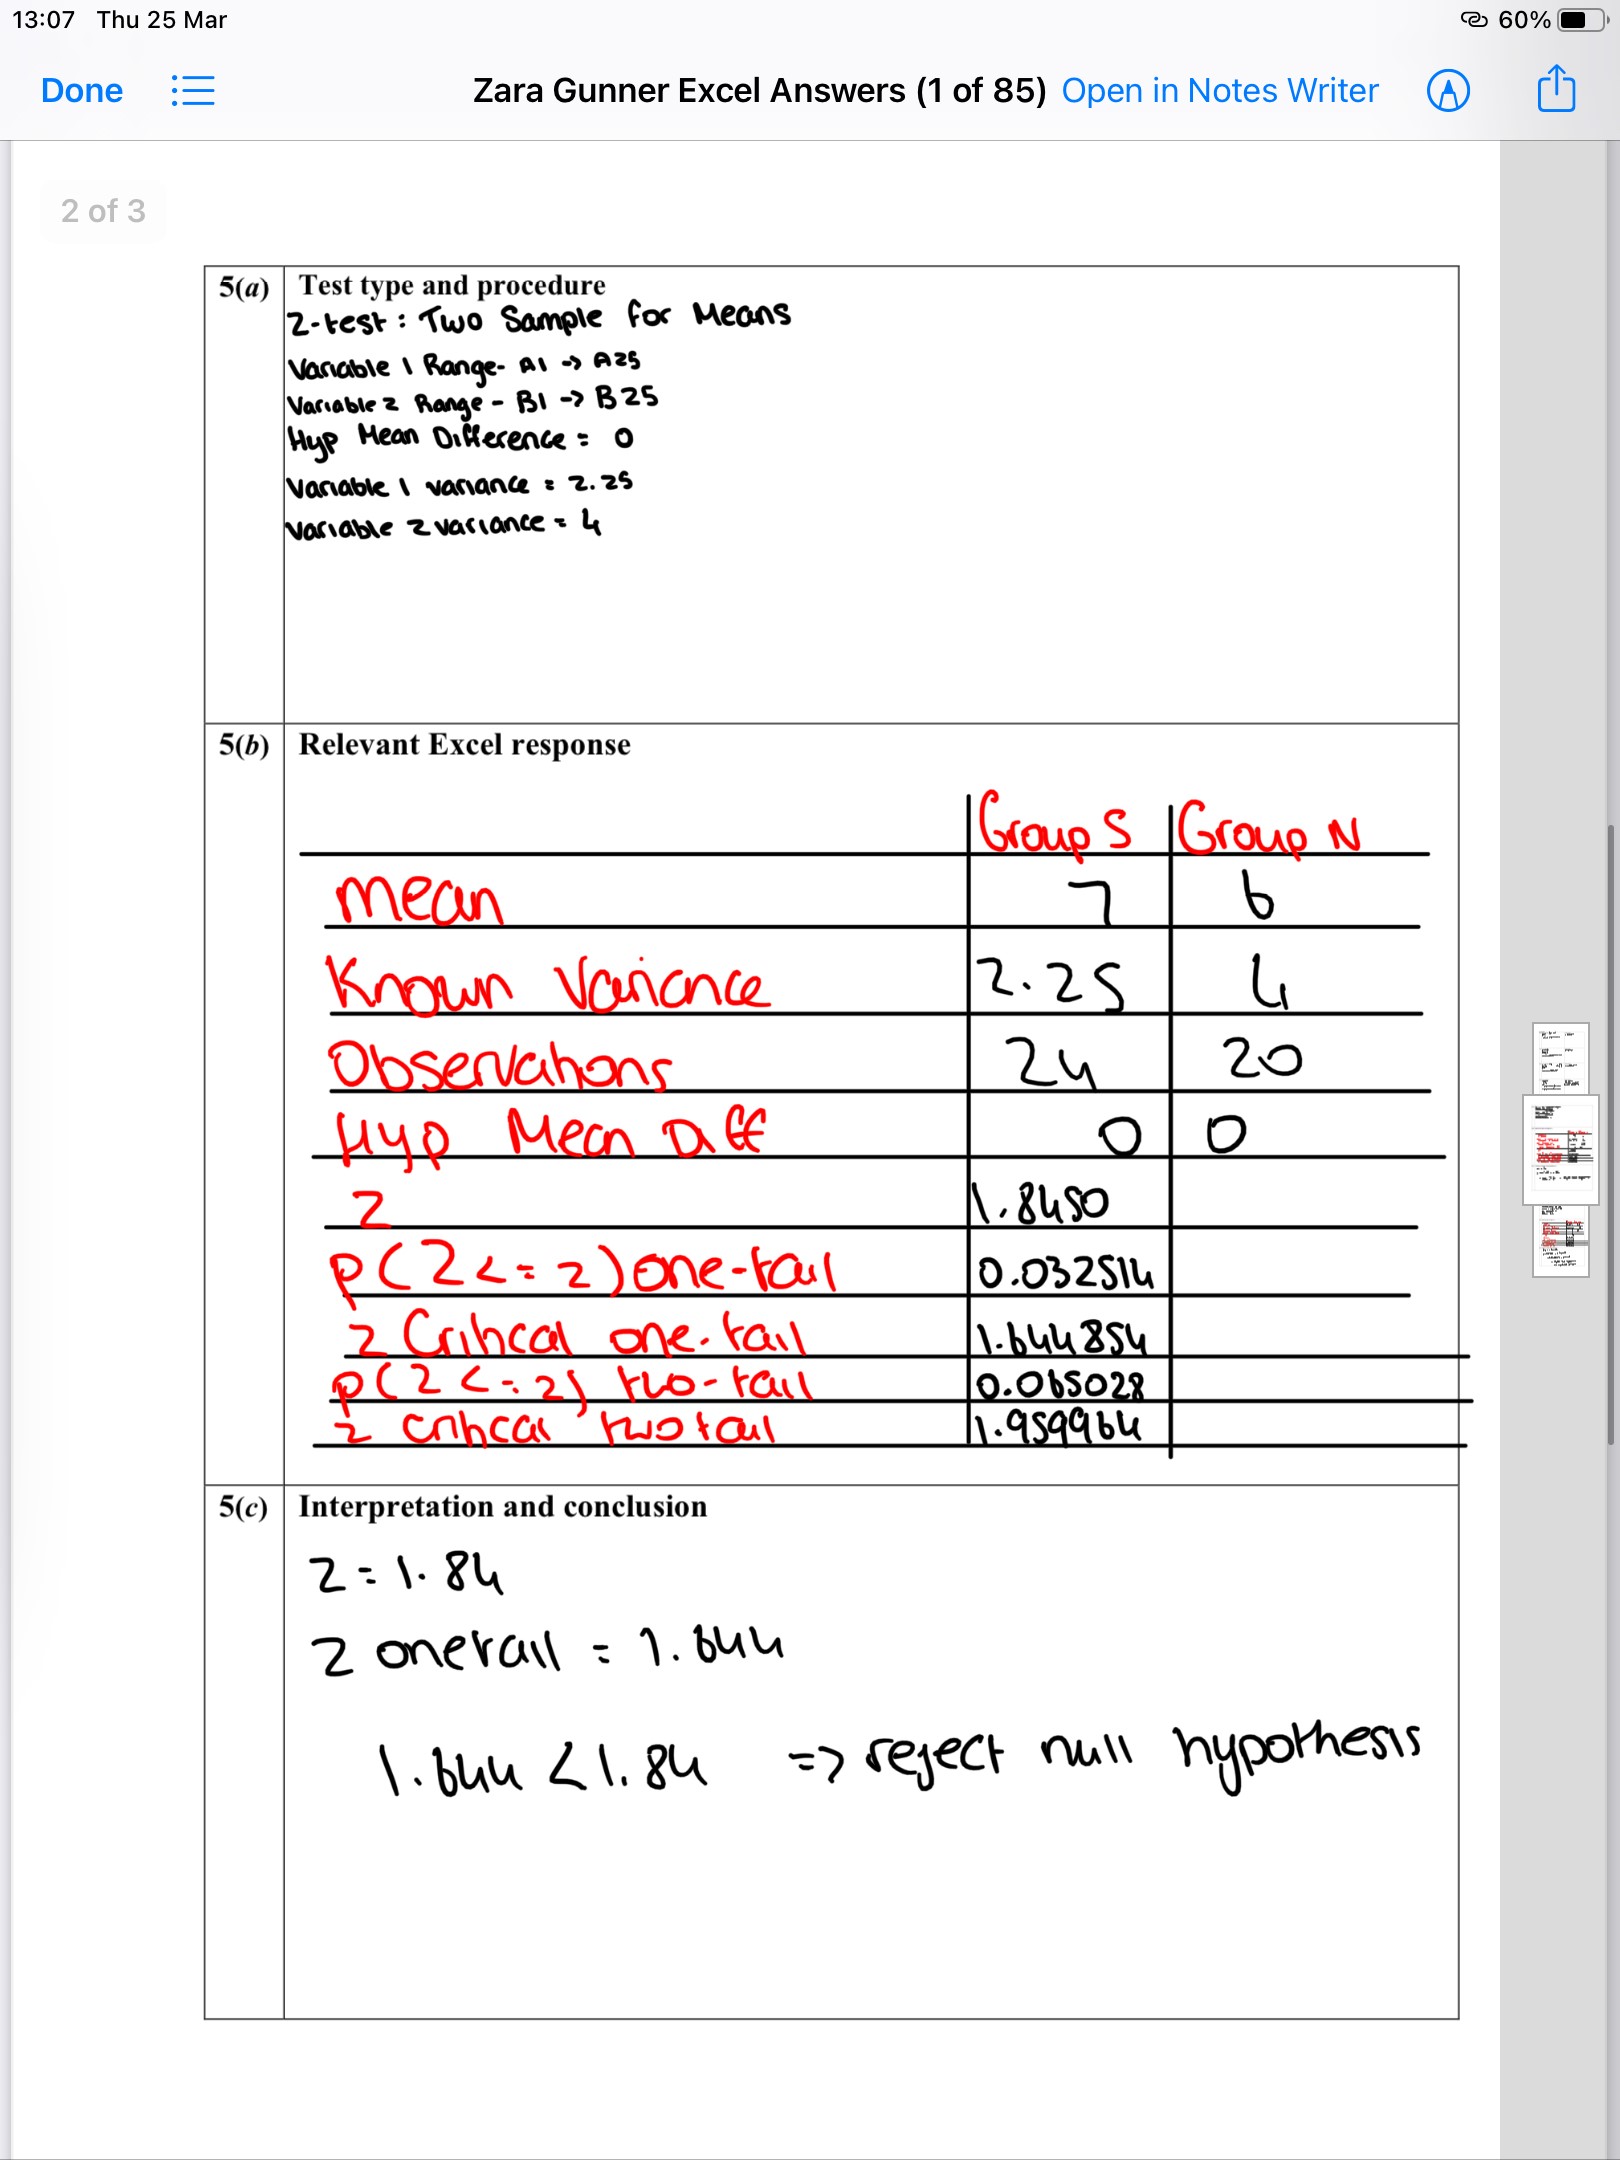 13:07 Thu 25 Mar
60%
Done
Zara Gunner Excel Answers (1 of 85)
Open in Notes Writer
2 of 3
5(a) Test type and procedure
Z-test : Two Sample for Means
Variable 1 Range- A1 -> A25
Variable 2 Range - B1 -> B25
Hyp Mean Difference = 0
Variable 1 variance = 2.25
Variable 2 variance = 4
5(b) Relevant Excel response
Group S Group N
mean 7 6
Known Variance 2.25 4
Observations 24 20
Hyp Mean Diff 0 0
Z 1.8450
P(Z<=z) one-tail 0.032514
z Critical one-tail 1.644854
P(Z<=z) two-tail 0.065028
z critical two tail 1.959964
5(c) Interpretation and conclusion
Z = 1.84
Z onetail = 1.644
1.644 < 1.84 => reject null hypothesis